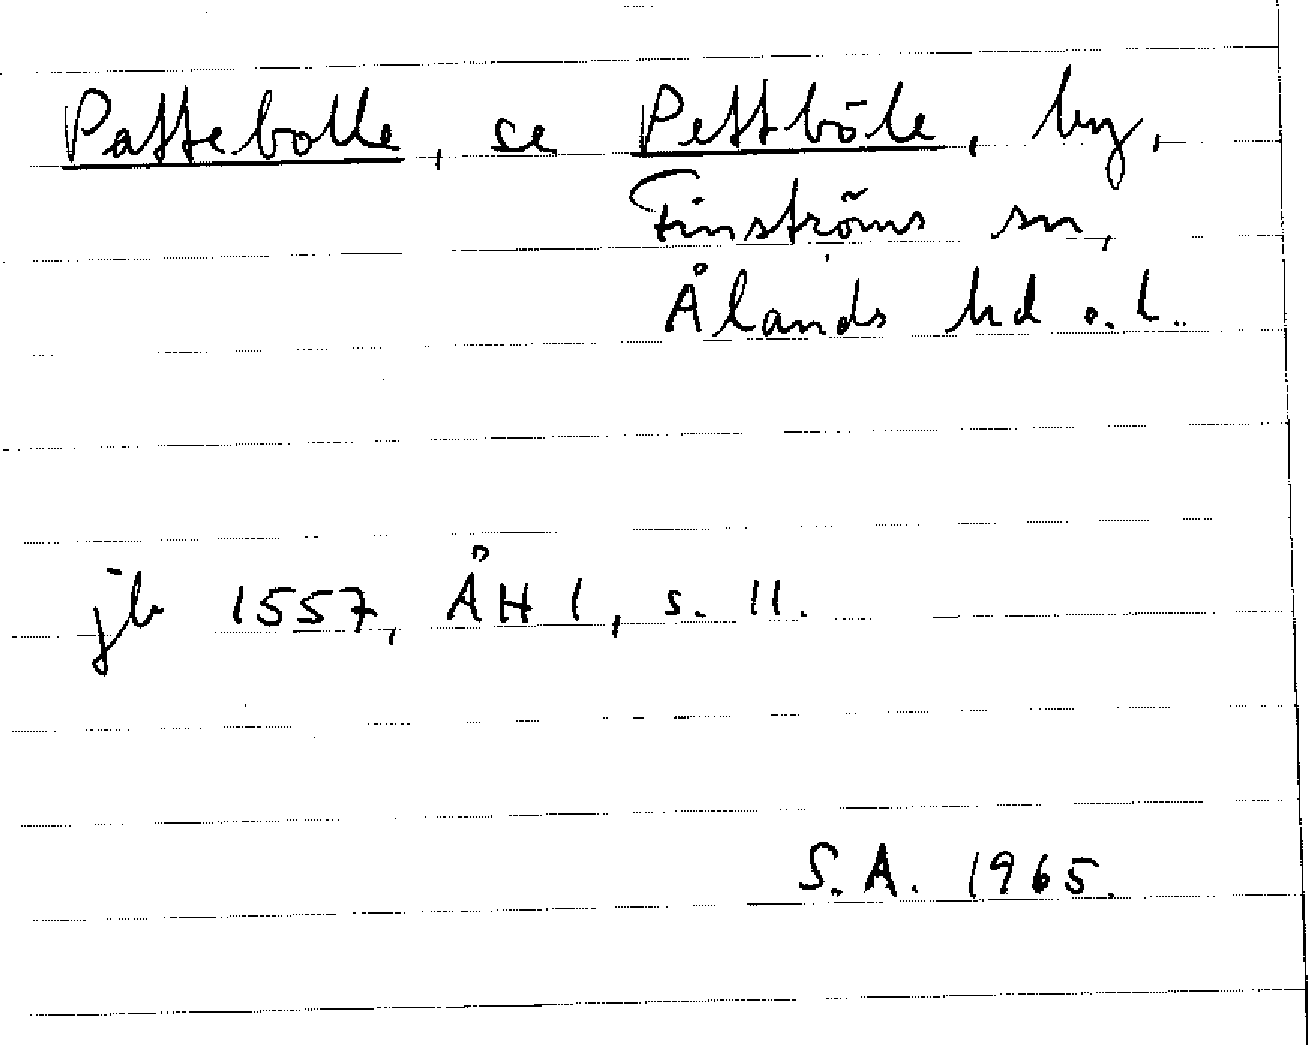 Pattebolle, se Pettböle, by,
Finströms sn,
Ålands hd o. l.
jb 1557, ÅH 1, s. 11.
S.A. 1965.